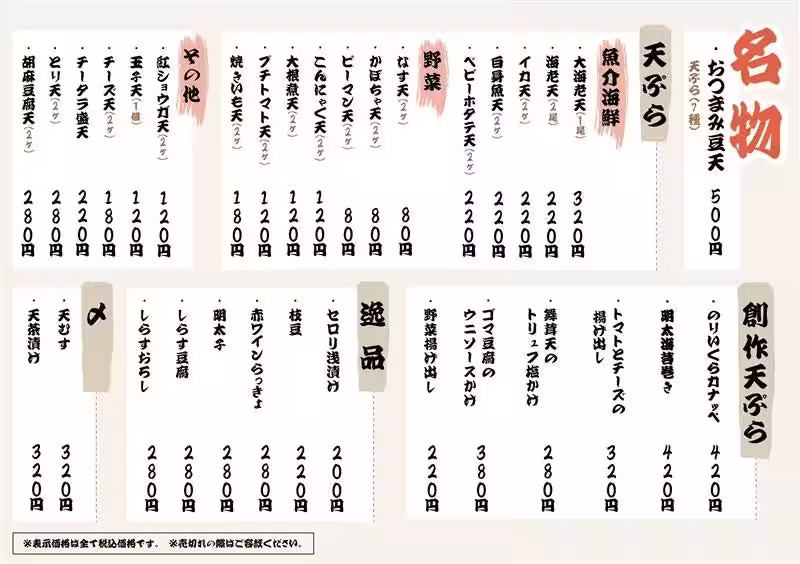 名物
・おつまみ豆天 500円
天ぷら(7種)
天ぷら
魚介海鮮
・大海老天(1尾) 320円
・海老天(2尾) 220円
・イカ天(2ヶ) 220円
・白身魚天(2ヶ) 220円
・ベビーホタテ天(2ヶ) 220円
野菜
・なす天(2ヶ) 80円
・かぼちゃ天(2ヶ) 80円
・ピーマン天(2ヶ) 80円
・こんにゃく天(2ヶ) 120円
・大根煮天(2ヶ) 120円
・プチトマト天(2ヶ) 120円
・焼きいも天(2ヶ) 180円
その他
・紅ショウガ天(2ヶ) 120円
・玉子天(1個) 120円
・チーズ天(2ヶ) 180円
・チータラ盛天 220円
・とり天(2ヶ) 280円
・胡麻豆腐天(2ヶ) 280円
創作天ぷら
・のりいくらカナッペ 420円
・明太海苔巻き 420円
・トマトとチーズの
揚げ出し 320円
・舞茸天の
トリュフ塩かけ 280円
・ゴマ豆腐の
ウニソースかけ 380円
・野菜揚げ出し 220円
逸品
・セロリ浅漬け 200円
・枝豆 220円
・赤ワインらっきょ 280円
・明太子 280円
・しらす豆腐 280円
・しらすおろし 280円
〆
・天むす 320円
・天茶漬け 320円
※表示価格は全て税込価格です。 ※売切れの際はご容赦ください。